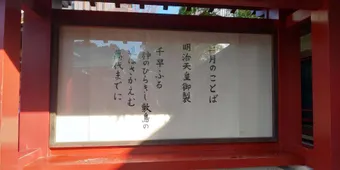 月のことば
明治天皇御製
千早ふる
神のひらきし敷島の
道はさかえむ
萬代までに